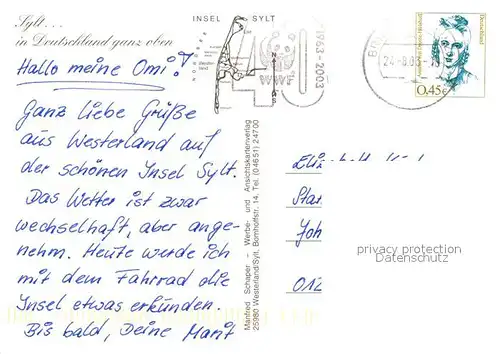 Sylt...
in Deutschland ganz oben
INSEL SYLT
Hallo meine Omi!
Ganz liebe Grüße
aus Westerland auf
der schönen Insel Sylt.
Das Wetter ist zwar
wechselhaft, aber ange-
nehm. Heute werde ich
mit dem Fahrrad die
Insel etwas erkunden.
Bis bald, Deine
Manfred Schaper - Werbe- und Ansichtskartenverlag
25980 Westerland/Sylt, Bomhoffstr. 14, Tel. (04651) 24700
40
WWF
1963-2003
24.-8.03
Deutschland
0,45€
privacy protection
Datenschutz